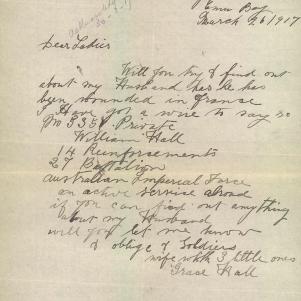 Emu Bay
March 26 1917
Dear Ladies
Will you try & find out
about my Husband has he
been wounded in france
I Have got a wire to say so
No 3351 Private
William Hall
14 Reinforcements
27 Battalion
Australian Imperial Force
on active service abroad
if you can find out anything
about my Husband
will you let me know
& oblige a Soldiers
wife with 3 little ones
Grace Hall